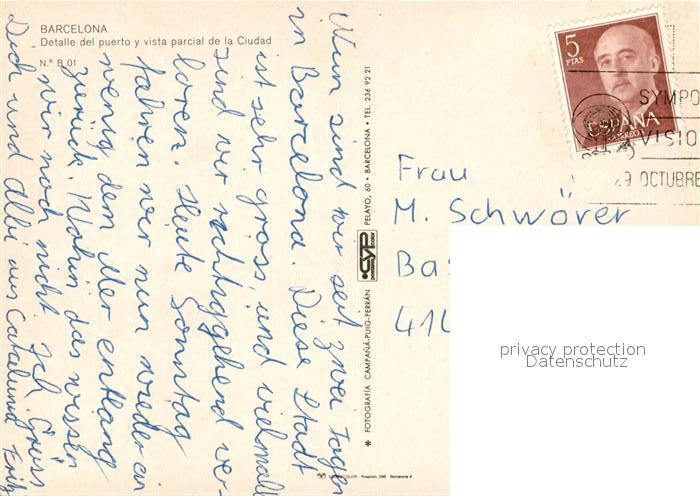 BARCELONA
Detalle del puerto y vista parcial de la Ciudad
N.º B 01
Nun sind wir seit zwei Tagen
in Barcelona. Diese Stadt
ist sehr gross, und vielmals
sind wir richtiggehend ver-
loren. Heute Sonntag
fahren wir nun wieder ein
wenig dem Meer entlang
zurück. Wohin das wissen
wir noch nicht. Ich Grüss
Dich und alli us Catalunia
FOTOGRAFÍA CAMPAÑÁ-PUIG-FERRÁN
CYP
PELAYO, 60 • BARCELONA • TEL. 236 92 21
5
PTAS
ESPAÑA
CORREO
SYMPO
VISIO
29 OCTUBRE
Frau
M. Schwörer
Ba
414
privacy protection
Datenschutz